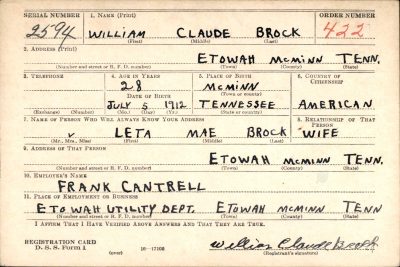 SERIAL NUMBER 1. NAME (Print) ORDER NUMBER
2594 WILLIAM CLAUDE BROCK 422
(First) (Middle) (Last)
2. ADDRESS (Print)
ETOWAH McMINN TENN.
(Number and street or R. F. D. number) (Town) (County) (State)
3. TELEPHONE 4. AGE IN YEARS 5. PLACE OF BIRTH 6. COUNTRY OF CITIZENSHIP
28 McMINN
(Town or county)
DATE OF BIRTH
JULY 5 1912 TENNESSEE AMERICAN
(Exchange) (Number) (Mo.) (Day) (Yr.) (State or country)
7. NAME OF PERSON WHO WILL ALWAYS KNOW YOUR ADDRESS 8. RELATIONSHIP OF THAT PERSON
LETA MAE BROCK WIFE
(Mr., Mrs., Miss) (First) (Middle) (Last)
9. ADDRESS OF THAT PERSON
ETOWAH McMINN TENN.
(Number and street or R. F. D. number) (Town) (County) (State)
10. EMPLOYER'S NAME
FRANK CANTRELL
11. PLACE OF EMPLOYMENT OR BUSINESS
ETOWAH UTILITY DEPT. ETOWAH McMINN TENN
(Number and street or R. F. D. number) (Town) (County) (State)
I AFFIRM THAT I HAVE VERIFIED ABOVE ANSWERS AND THAT THEY ARE TRUE.
REGISTRATION CARD
D. S. S. Form 1 (over) 16—17105 William Claude Brock
(Registrant's signature)